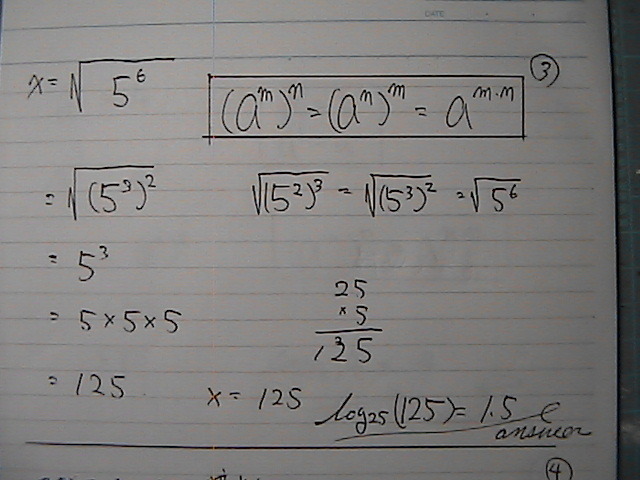 DATE
③
x = √5⁶
(aᵐ)ⁿ = (aⁿ)ᵐ = a^(m·n)
= √(5³)²
√(5²)³ = √(5³)² = √5⁶
= 5³
= 5 × 5 × 5
25
× 5
125
= 125
x = 125
log₂₅(125) = 1.5
answer
④